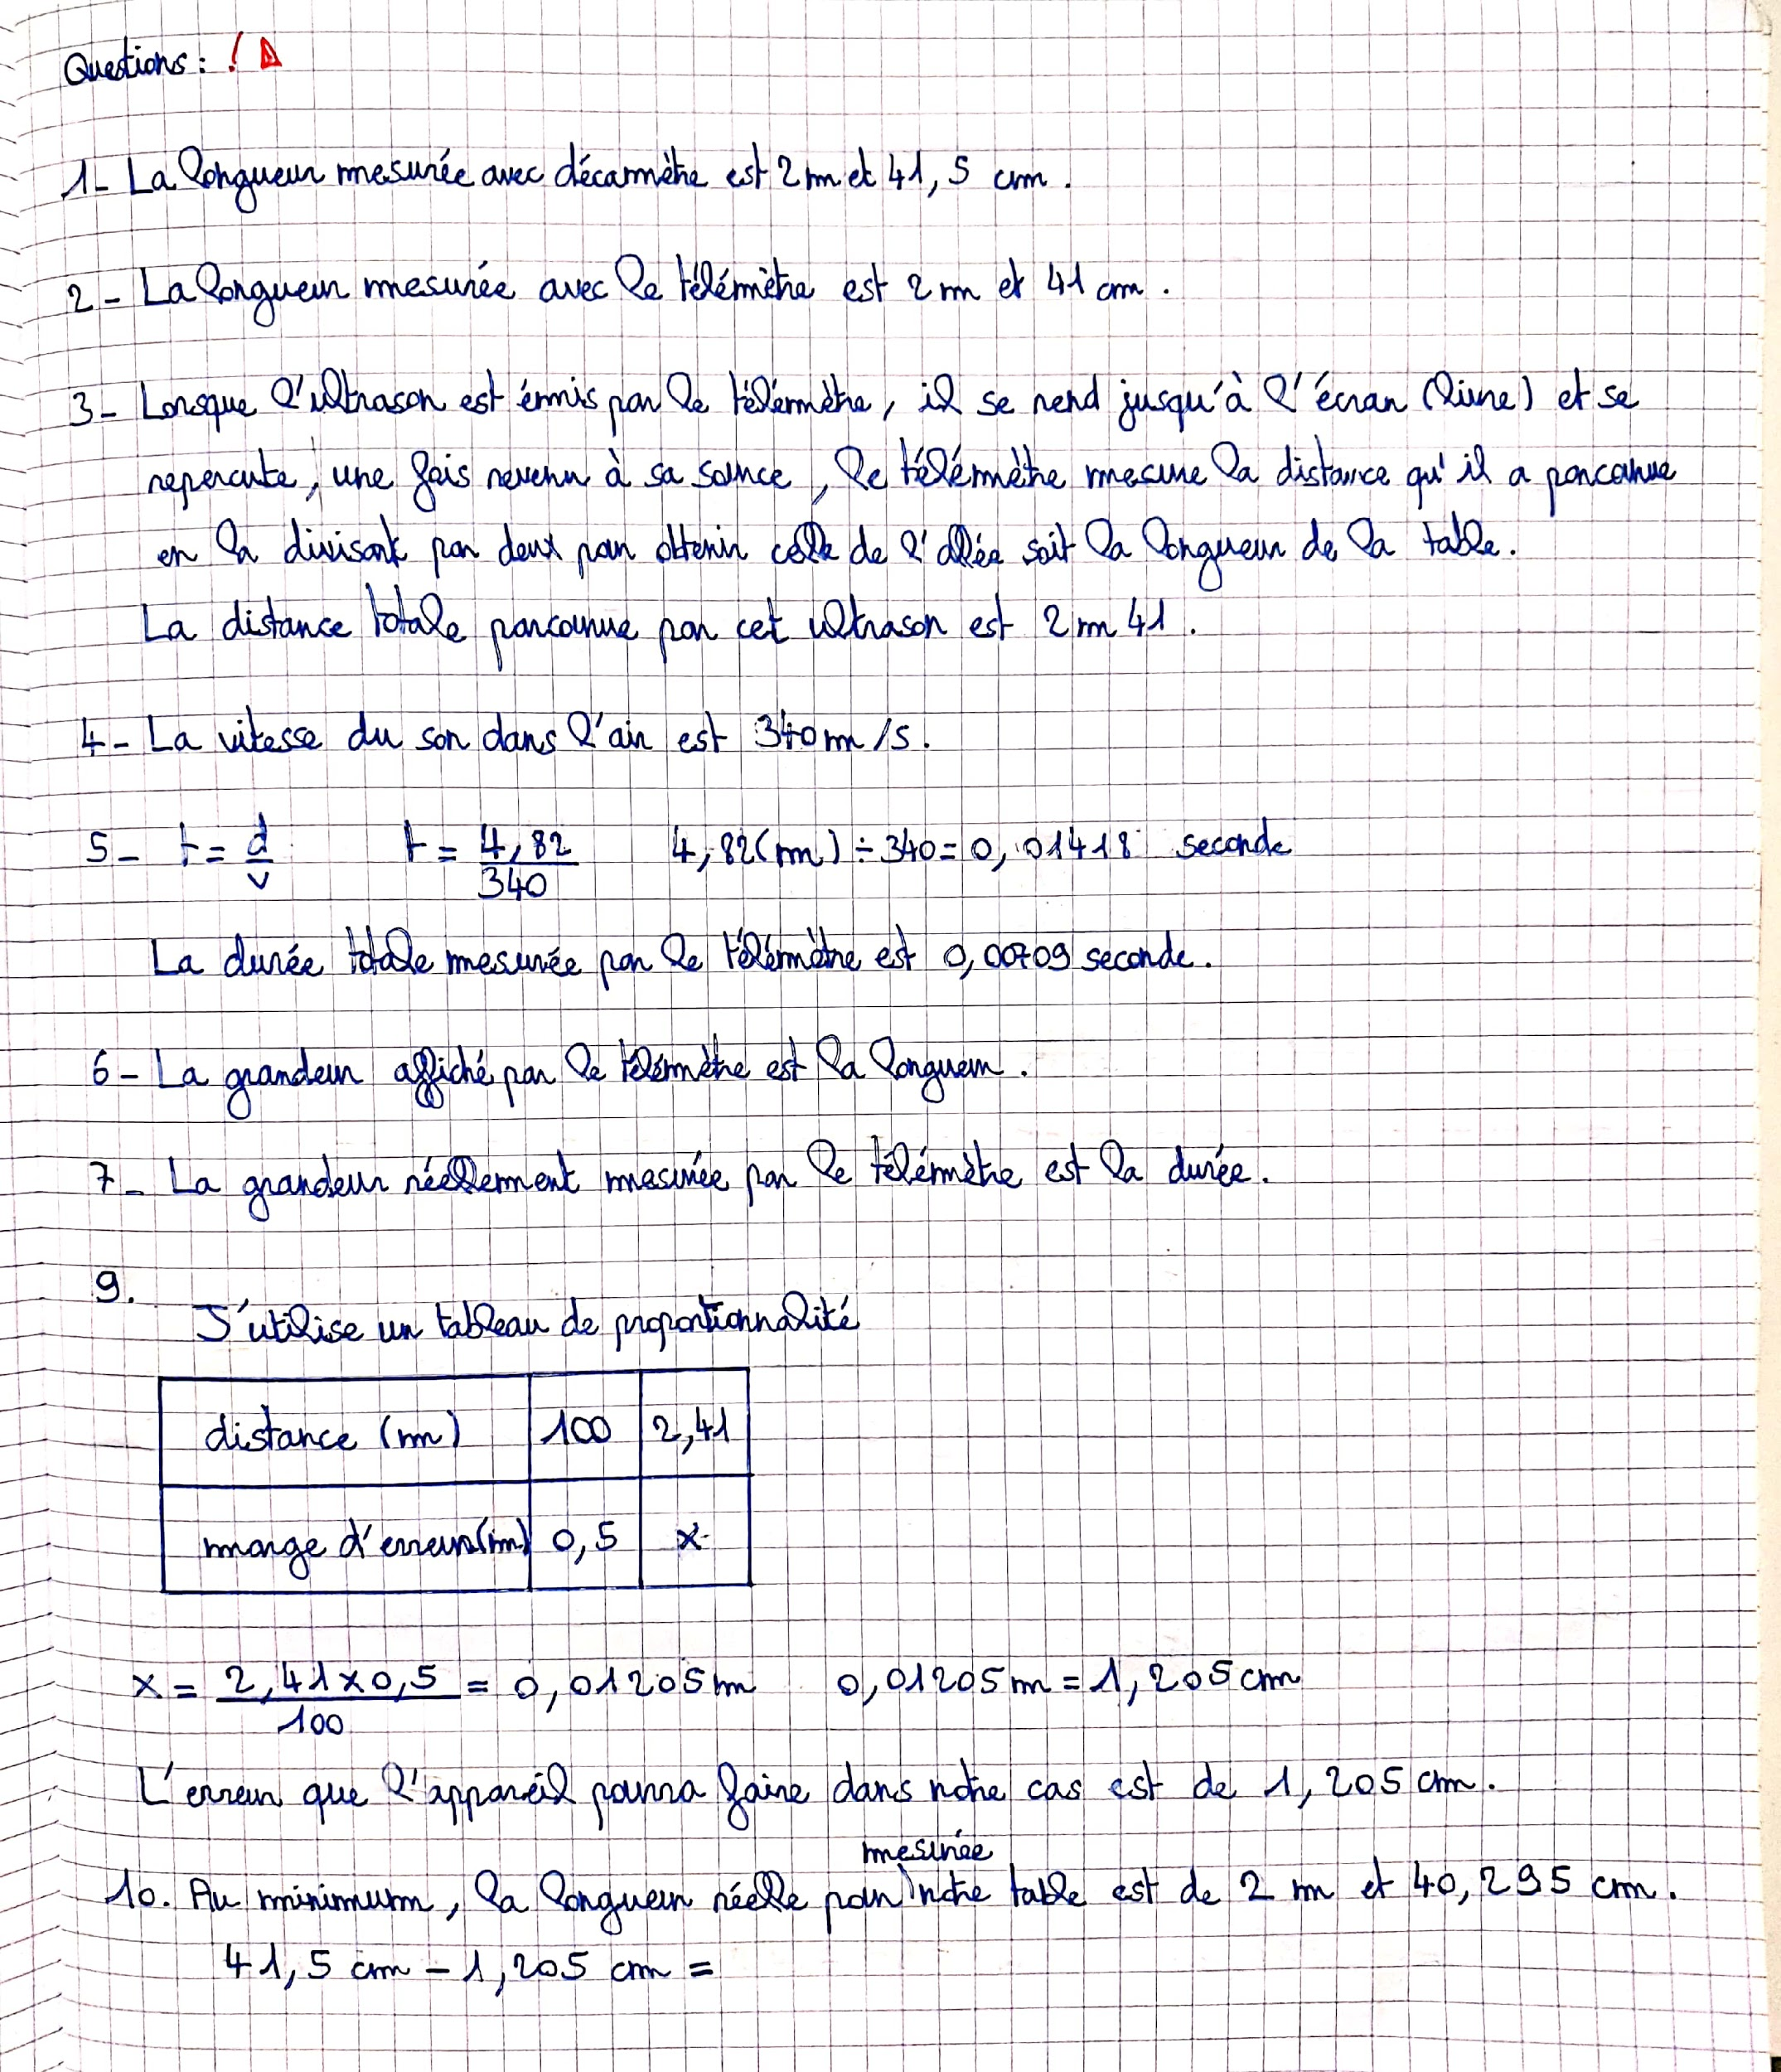 Questions : !
1- La longueur mesurée avec décamètre est 2 m et 41,5 cm.
2- La longueur mesurée avec le télémètre est 2 m et 41 cm.
3- Lorsque l'ultrason est émis par le télémètre, il se rend jusqu'à l'écran (livre) et se
repercute, une fois revenu à sa source, le télémètre mesure la distance qu'il a parcourue
en la divisant par deux pour obtenir celle de l'allée soit la longueur de la table.
La distance totale parcourue par cet ultrason est 2 m 41.
4- La vitesse du son dans l'air est 340 m/s.
5- t = d/v t = 4,82/340 4,82(m) ÷ 340 = 0,01418 seconde
La durée totale mesurée par le télémètre est 0,00709 seconde.
6- La grandeur affiché par le télémètre est la longueur.
7- La grandeur réellement mesurée par le télémètre est la durée.
9.
J'utilise un tableau de proportionnalité
distance (m) 100 2,41
marge d'erreur(m) 0,5 x
x = 2,41 x 0,5/100 = 0,01205 m 0,01205 m = 1,205 cm
L'erreur que l'appareil pourra faire dans notre cas est de 1,205 cm.
mesurée
10. Au minimum, la longueur réelle pour notre table est de 2 m et 40,295 cm.
41,5 cm - 1,205 cm =